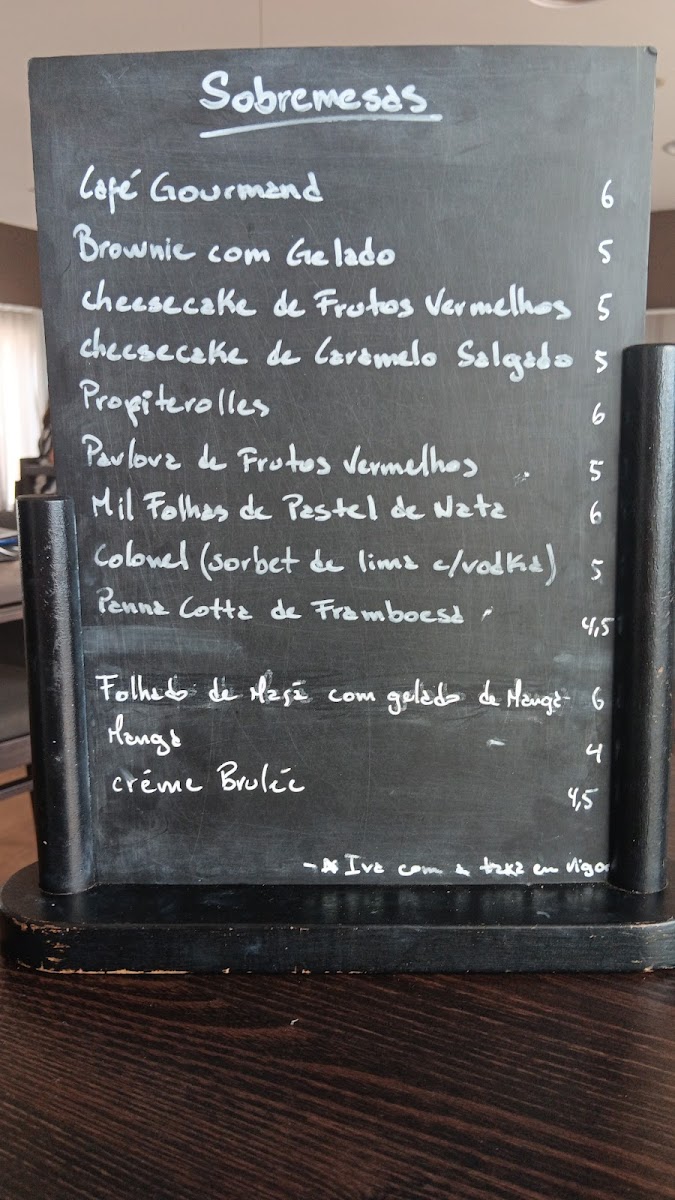 Sobremesas
Café Gourmand 6
Brownie com Gelado 5
cheesecake de Frutos Vermelhos 5
cheesecake de Caramelo Salgado 5
Profiterolles 6
Pavlova de Frutos Vermelhos 5
Mil Folhas de Pastel de Nata 6
Colonel (sorbet de lima c/vodka) 5
Panna Cotta de Framboesa 4,5
Folhado de Maçã com gelado de Manga 6
Manga 4
créme Brulée 4,5
Iva com a taxa em vigor